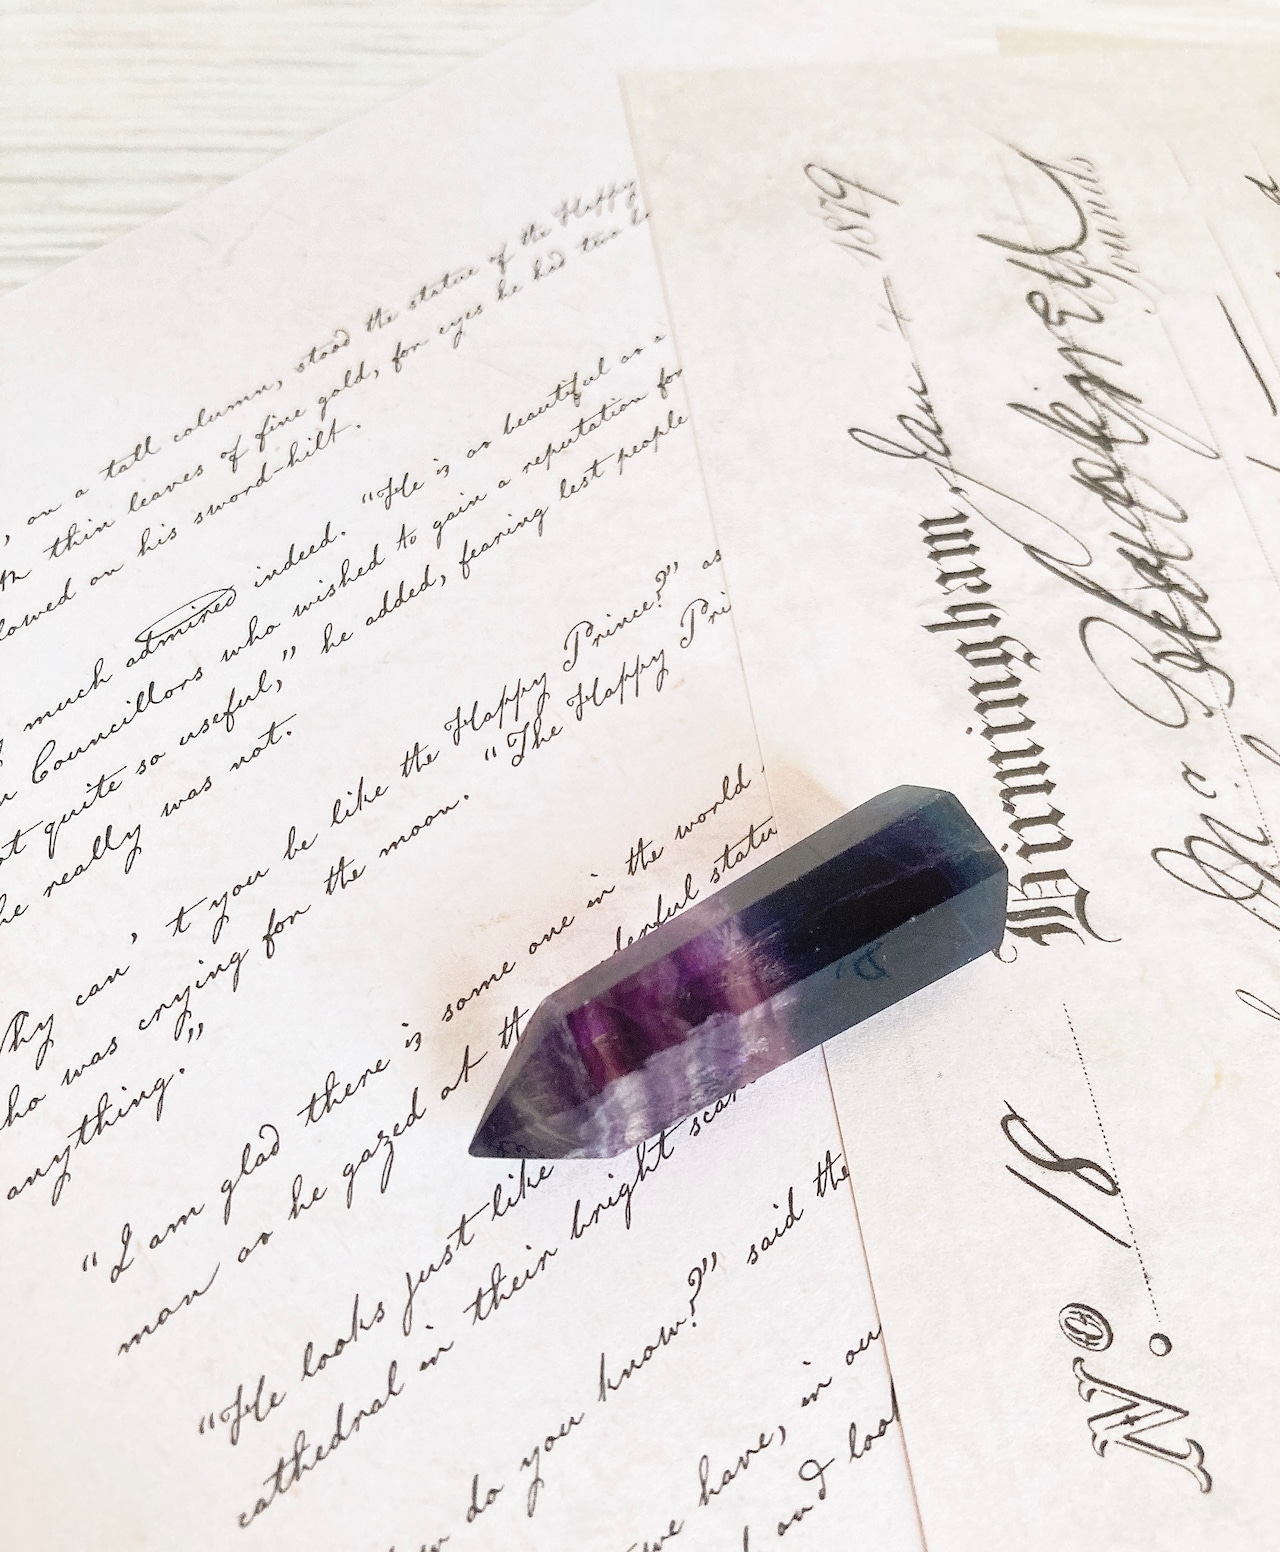 , on a tall column, stood the statue of the Happy
thin leaves of fine gold, for eyes he had two
on his sword-hilt.
much admired indeed. "He is as beautiful as a
Councillors who wished to gain a reputation for
quite so useful," he added, fearing lest people
he really was not.
can't you be like the Happy Prince?" as
was crying for the moon. "The Happy Pri
anything."
"I am glad there is some one in the world
man as he gazed at
"He looks just like
cathedral in their bright
do you know?" said the
we have, in
and I
No. 18
Birmingham, Jan 1879
Mc
Pounds